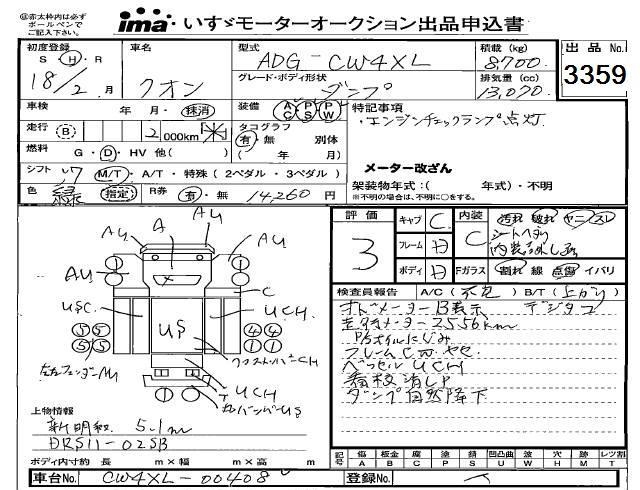 ◎赤太枠内は必ず
ボールペンで
ご記入下さい。
ima いすゞモーターオークション出品申込書
初度登録 車名 型式 ADG-CW4XL 積載(kg) 8,700 出品No.
S・H・R 18/2月 クオン グレード・ボディ形状 ダンプ 排気量(cc) 13,070 3359
車検 年 月・抹消 装備 AC PS PW 特記事項
・エンジンチェックランプ点灯
走行 B 2 000km タコグラフ 有・無 別体
燃料 G・D・HV 他( ) ( 年 月) メーター改ざん
シフト 7 M/T・A/T・特殊(2ペダル・3ペダル)
架装物年式:( 年式)・不明
色 緑 指定 R券 有・無 14,260円 ※不明の場合は、不明に○をする。
評価 3 キャブ C 内装 C 汚れ 破れ ヤニ スレ
シートヘタリ
フレーム D
ボディ D Fガラス 割れ 線 点傷 イバリ
検査員報告 A/C(不包) B/T(上がり)
オドメーターB表示 デジタコ
走行メーター2556km
P/Sオイルにじみ
フレームCW ヤセ
ベッセルUCH
看板消し P
ダンプ自然降下
AU AU
A
AU AU
C
USC US UCH
左右フェンダーAU
UCH
上物情報
新明和 5.1m
DRS11-02SB
ボディ内寸約 長 m×幅 m×高 m
記号 傷 A 板金 B 腐 C 塗 P 錆 S 凹凸曲 U 波 W 穴 H 跡 M レツ割 T
車台No. CW4XL-00408 登録No.